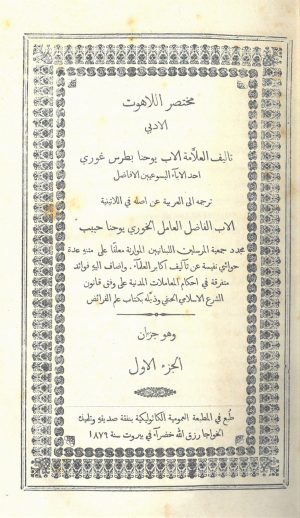 مختصر اللاهوت
الادبي
تاليف العلامة الاب يوحنا بطرس غوري
احد الآباء اليسوعيين الافاضل
ترجمه الى العربية عن اصله في اللاتينية
الاب الفاضل العامل الخوري يوحنا حبيب
مجدد جمعية المرسلين اللبنانيين الموارنة معلقا على متنه عدة
حواشي نفيسة عن تآليف اكابر العلماء. واضاف اليه فوائد
متفرقة في احكام المعاملات المدنية على وفق قانون
الشرع الاسلامي الحنفي وذيله بكتاب علم الفرائض
وهو جزءان
الجزء الاول
طبع في المطبعة العمومية الكاثوليكية بنفقة صديقه
الخواجا رزق الله خضرآء في بيروت سنة ١٨٧٩